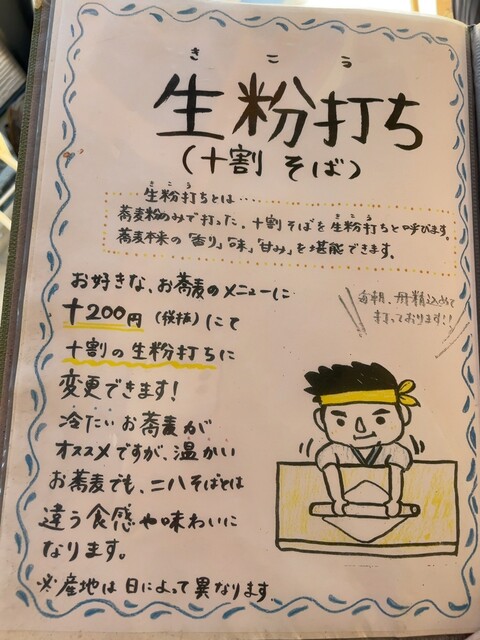 きこう
生粉打ち
(十割 そば)
きこう
生粉打ちとは・・・
きこう
蕎麦粉のみで打った、十割そばを生粉打ちと呼びます。
蕎麦本来の「香り」「味」「甘み」を堪能できます。
お好きな、お蕎麦のメニューに
+200円 (税抜)にて
十割の生粉打ちに
変更できます!
冷たいお蕎麦が
オススメですが、温かい
お蕎麦でも、二八そばとは
違う食感や味わいに
なります。
※産地は日によって異なります
毎朝、丹精込めて
打っております!!